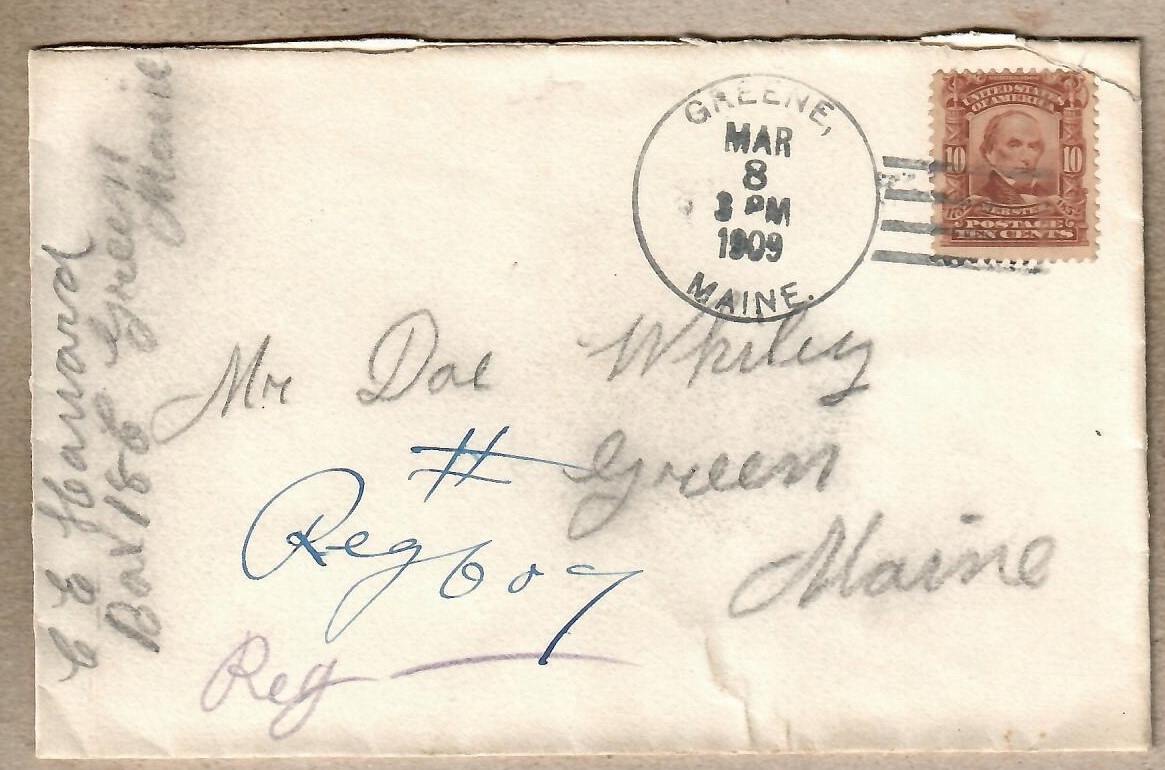 C E Haward
Box 186 Green
Maine
GREENE,
MAR
8
3 PM
1909
MAINE.
UNITED STATES
OF AMERICA
10 10
WEBSTER
POSTAGE
TEN CENTS
Mr Doe Whiley
# Green
Maine
Reg 607
Reg